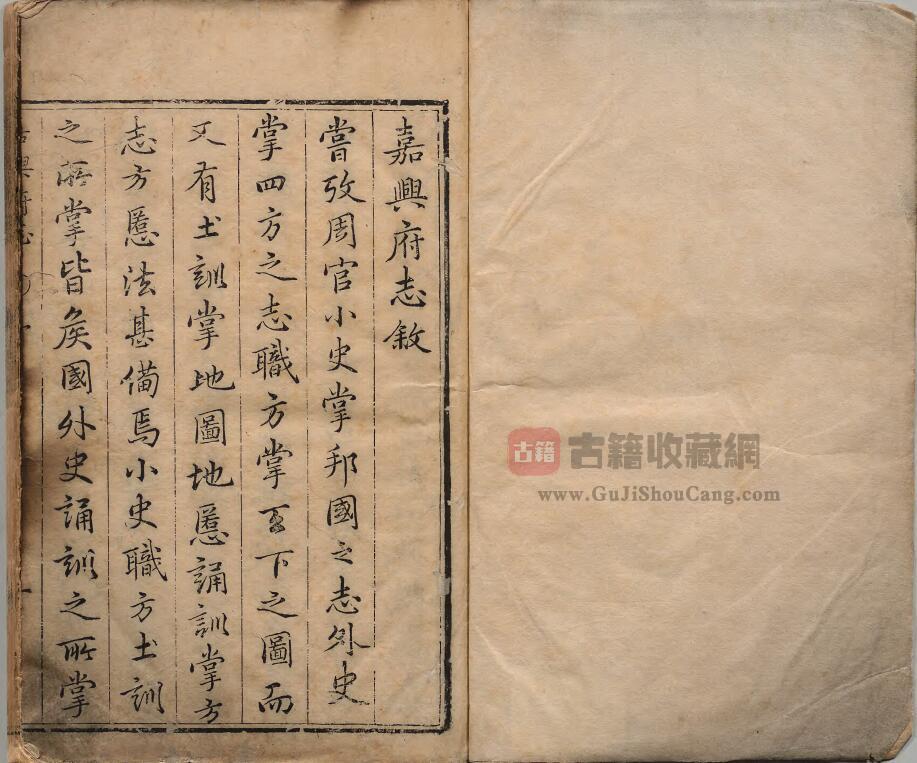 嘉興府志敘
嘗攷周官小史掌邦國之志外史
掌四方之志職方掌天下之圖而
又有土訓掌地圖地慝誦訓掌方
志方慝法甚備焉小史職方土訓
之所掌皆矦國外史誦訓之所掌
古籍
古籍收藏網
www.GuJiShouCang.com